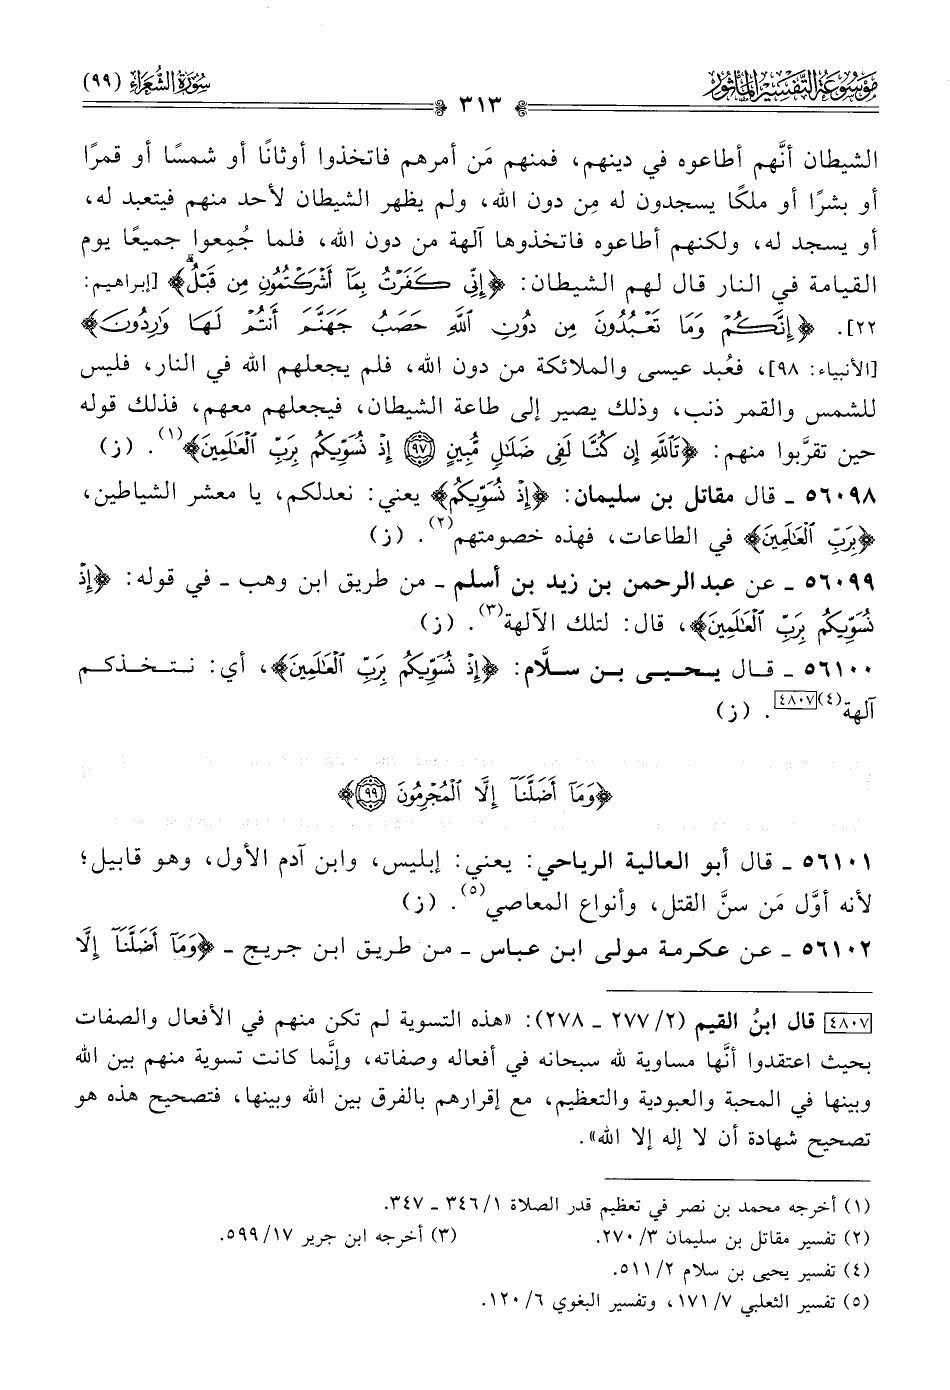 مَوْسُوعَةُ التَّفْسِيرِ المَأْثُور
٣١٣
سُورَةُ الشُّعَرَاءِ (٩٩)
الشيطان أنَّهم أطاعوه في دينهم، فمنهم مَن أمرهم فاتخذوا أوثانًا أو شمسًا أو قمرًا
أو بشرًا أو ملكًا يسجدون له مِن دون الله، ولم يظهر الشيطان لأحد منهم فيتعبد له،
أو يسجد له، ولكنهم أطاعوه فاتخذوها آلهة من دون الله، فلما جُمِعوا جميعًا يوم
القيامة في النار قال لهم الشيطان: ﴿إِنِّي كَفَرْتُ بِمَآ أَشْرَكْتُمُونِ مِن قَبْلُ﴾ [إبراهيم:
٢٢]. ﴿إِنَّكُمْ وَمَا تَعْبُدُونَ مِن دُونِ ٱللَّهِ حَصَبُ جَهَنَّمَ أَنتُمْ لَهَا وَٰرِدُونَ﴾
[الأنبياء: ٩٨]، فعُبد عيسى والملائكة من دون الله، فلم يجعلهم الله في النار، فليس
للشمس والقمر ذنب، وذلك يصير إلى طاعة الشيطان، فيجعلهم معهم، فذلك قوله
حين تقرَّبوا منهم: ﴿تَٱللَّهِ إِن كُنَّا لَفِى ضَلَٰلٍ مُّبِينٍ ۝٩٧ إِذْ نُسَوِّيكُم بِرَبِّ ٱلْعَٰلَمِينَ﴾(١). (ز)
٥٦٠٩٨ ـ قال مقاتل بن سليمان: ﴿إِذْ نُسَوِّيكُم﴾ يعني: نعدلكم، يا معشر الشياطين،
﴿بِرَبِّ ٱلْعَٰلَمِينَ﴾ في الطاعات، فهذه خصومتهم(٢). (ز)
٥٦٠٩٩ ـ عن عبدالرحمن بن زيد بن أسلم ـ من طريق ابن وهب ـ في قوله: ﴿إِذْ
نُسَوِّيكُم بِرَبِّ ٱلْعَٰلَمِينَ﴾، قال: لتلك الآلهة(٣). (ز)
٥٦١٠٠ ـ قال يحيى بن سلَّام: ﴿إِذْ نُسَوِّيكُم بِرَبِّ ٱلْعَٰلَمِينَ﴾، أي: نتخذكم
آلهة(٤)[٤٨٠٧]. (ز)
﴿وَمَآ أَضَلَّنَآ إِلَّا ٱلْمُجْرِمُونَ ۝٩٩﴾
٥٦١٠١ ـ قال أبو العالية الرياحي: يعني: إبليس، وابن آدم الأول، وهو قابيل؛
لأنه أوَّل مَن سنَّ القتل، وأنواع المعاصي(٥). (ز)
٥٦١٠٢ ـ عن عكرمة مولى ابن عباس ـ من طريق ابن جريج ـ ﴿وَمَآ أَضَلَّنَآ إِلَّا
[٤٨٠٧] قال ابنُ القيم (٢/ ٢٧٧ ـ ٢٧٨): «هذه التسوية لم تكن منهم في الأفعال والصفات
بحيث اعتقدوا أنَّها مساوية لله سبحانه في أفعاله وصفاته، وإنَّما كانت تسوية منهم بين الله
وبينها في المحبة والعبودية والتعظيم، مع إقرارهم بالفرق بين الله وبينها، فتصحيح هذه هو
تصحيح شهادة أن لا إله إلا الله».
(١) أخرجه محمد بن نصر في تعظيم قدر الصلاة ١/ ٣٤٦ ـ ٣٤٧.
(٢) تفسير مقاتل بن سليمان ٣/ ٢٧٠. (٣) أخرجه ابن جرير ١٧/ ٥٩٩.
(٤) تفسير يحيى بن سلام ٢/ ٥١١.
(٥) تفسير الثعلبي ٧/ ١٧١، وتفسير البغوي ٦/ ١٢٠.